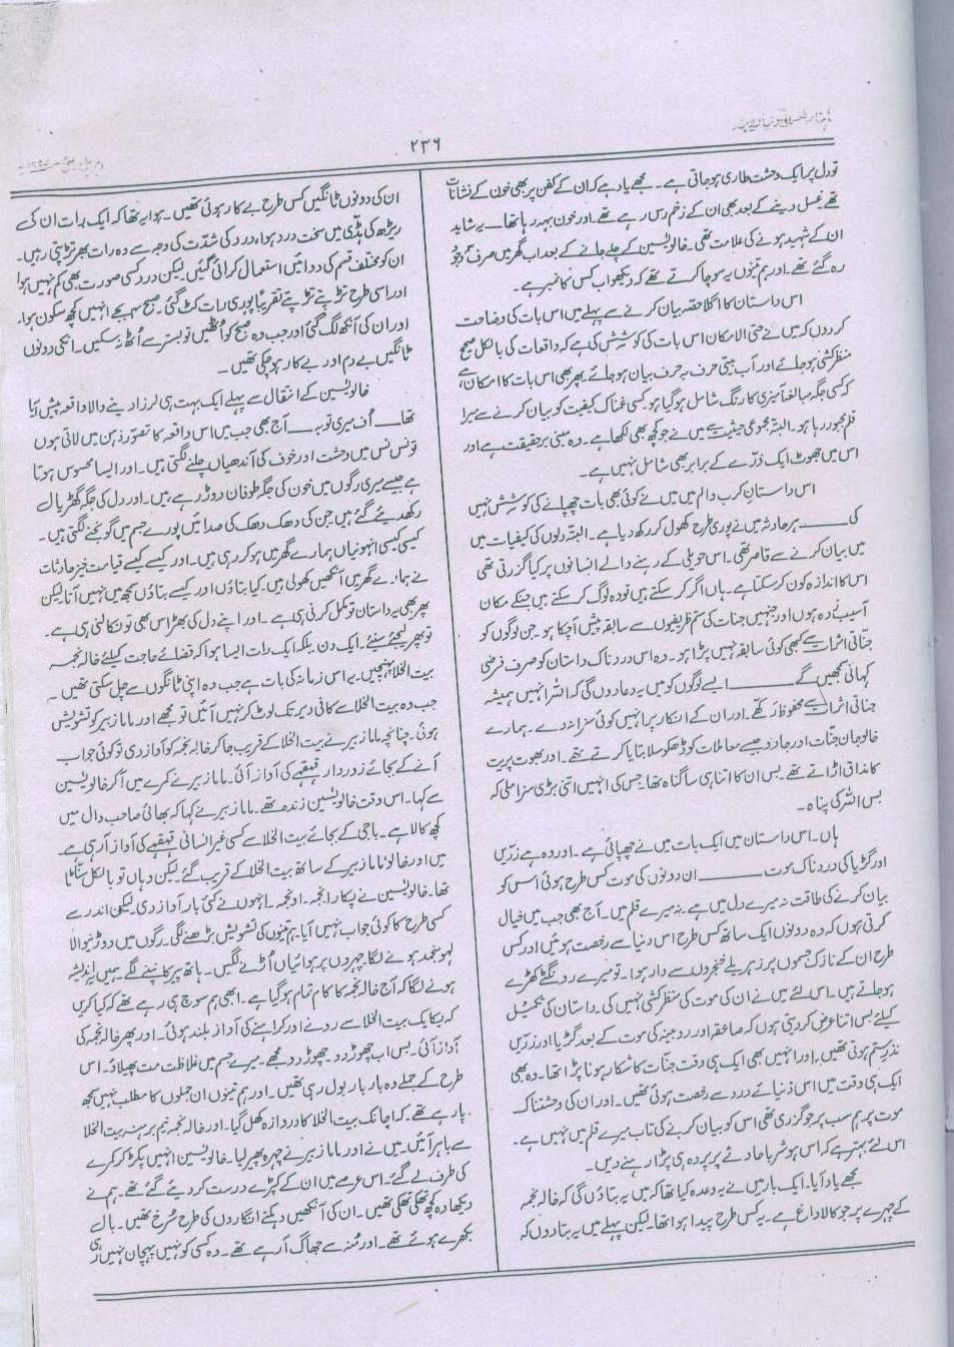 ۲۳۶
تو دل پر ایک دہشت طاری ہو جاتی ہے۔ مجھے یاد ہے کہ ان کے کفن پر بھی خون کے نشانات
تھے غسل دینے کے بعد بھی ان کے زخم رس رہے تھے۔ اور خون بہہ رہا تھا۔ یہ شاید
ان کے شہید ہونے کی علامت تھی۔ خالو یٰسین کے چلے جانے کے بعد اب گھر میں صرف
رہ گئے تھے۔ اور ہم تینوں یہ سوچا کرتے تھے کہ دیکھو اب کس کا نمبر ہے۔
اس داستان کا اگلا حصہ بیان کرنے سے پہلے میں اس بات کی وضاحت
کر دوں کہ میں نے حتی الامکان اس بات کی کوشش کی ہے کہ واقعات کی بالکل صحیح
منظر کشی ہو جائے اور آپ بیتی حرف بہ حرف بیان ہو جائے پھر بھی اس بات کا امکان ہے
کہ کسی جگہ مبالغہ آمیزی کا رنگ شامل ہو گیا ہو کسی غمناک کیفیت کو بیان کرنے سے میرا
قلم مجبور رہا ہو۔ البتہ مجموعی حیثیت سے میں نے جو کچھ بھی لکھا ہے۔ وہ مبنی بر حقیقت ہے اور
اس میں جھوٹ ایک ذرّے کے برابر بھی شامل نہیں ہے۔
اس داستانِ کرب و الم میں میں نے کوئی بھی بات چھپانے کی کوشش نہیں
کی ــــ ہر حادثہ میں نے پوری طرح کھول کر رکھ دیا ہے۔ البتہ دلوں کی کیفیات میں
میں بیان کرنے سے قاصر تھی۔ اس حویلی کے رہنے والے انسانوں پر کیا گزرتی تھی
اس کا اندازہ کون کر سکتا ہے۔ ہاں اگر کر سکتے ہیں تو وہ لوگ کر سکتے ہیں جنکے مکان
آسیب زدہ ہوں اور جنہیں جنات کی ستم ظریفیوں سے سابقہ پیش آچکا ہو۔ جن لوگوں کو
جناتی اثرات سے کبھی کوئی سابقہ نہیں پڑا ہو۔ وہ اس دردناک داستان کو صرف فرضی
کہانی سمجھیں گے ــــــــ ایسے لوگوں کو میں یہ دعا دوں گی کہ اللہ انہیں ہمیشہ
جناتی اثرات سے محفوظ رکھے۔ اور ان کے انکار پر انہیں کوئی سزا نہ دے۔ ہمارے
خالو جان جنات اور جادو جیسے معاملات کو ڈھکوسلا بتایا کرتے تھے۔ اور بھوت پریت
کا مذاق اڑاتے تھے۔ بس ان کا اتنا ہی سا گناہ تھا۔ جس کی انہیں اتنی بڑی سزا ملی کہ
بس اللہ کی پناہ۔
ہاں۔ اس داستان میں ایک بات میں نے چھپائی ہے۔ اور وہ ہے زرّیں
اور گڑیا کی دردناک موت ــــــــ ان دونوں کی موت کس طرح ہوئی اس کو
بیان کرنے کی طاقت نہ میرے دل میں ہے۔ نہ میرے قلم میں۔ آج بھی جب میں خیال
کرتی ہوں کہ وہ دونوں ایک ساتھ کس طرح اس دنیا سے رخصت ہوئیں اور کس
طرح ان کے نازک جسموں پر زہریلے خنجروں سے وار ہوا۔ تو میرے رونگٹے کھڑے
ہو جاتے ہیں۔ اس لئے میں نے ان کی موت کی منظر کشی نہیں کی۔ داستان کی تکمیل
کیلئے بس اتنا عرض کر دیتی ہوں کہ صاعقہ اور روبینہ کی موت کے بعد گڑیا اور زرّیں
نذرِ ستم ہوئی تھیں۔ اور انہیں بھی ایک ہی وقت جنّات کا شکار ہونا پڑا تھا۔ وہ بھی
ایک ہی وقت میں اس دنیائے درد سے رخصت ہوئی تھیں۔ اور ان کی وحشتناک
موت پر ہم سب پر جو گزری تھی اس کو بیان کرنے کی تاب میرے قلم میں نہیں ہے۔
اس لئے بہتر ہے کہ اس ہوشربا حادثے پر پردہ ہی پڑا رہنے دیں۔
مجھے یاد آیا۔ ایک بار میں نے یہ وعدہ کیا تھا کہ میں یہ بتاؤں گی کہ خالہ نجمہ
کے چہرے پر جو کالا داغ ہے۔ یہ کس طرح پیدا ہوا تھا۔ لیکن پہلے میں یہ بتا دوں کہ
ان کی دونوں ٹانگیں کس طرح بے کار ہوئی تھیں۔ ہوا یہ تھا کہ ایک رات ان کی
ریڑھ کی ہڈی میں سخت درد ہوا، درد کی شدّت کی وجہ سے وہ رات بھر تڑپتی رہیں۔
ان کو مختلف قسم کی دوائیں استعمال کرائی گئیں۔ لیکن درد کسی صورت بھی کم نہیں ہوا
اور اسی طرح تڑپتے تڑپتے تقریباً پوری رات کٹ گئی۔ صبح ۴ بجے انہیں کچھ سکون ہوا۔
اور ان کی آنکھ لگ گئی اور جب وہ صبح کو اُٹھیں تو بستر سے اُٹھ نہ سکیں۔ انکی دونوں
ٹانگیں بے دم اور بے کار ہو چکی تھیں۔
خالو یٰسین کے انتقال سے پہلے ایک بہت ہی لرزا دینے والا واقعہ پیش آیا
تھا ــــ اُف میری توبہ ــــ آج بھی جب میں اس واقعہ کا تصوّر ذہن میں لاتی ہوں
تو نس نس میں دہشت اور خوف کی آندھیاں چلنے لگتی ہیں۔ اور ایسا محسوس ہوتا
ہے جیسے میری رگوں میں خون کی جگہ طوفان دوڑ رہے ہیں۔ اور دل کی جگہ گھڑیال
رکھ دیئے گئے ہیں جن کی دھک دھک کی صدائیں پورے جسم میں گونجنے لگتی ہیں۔
کیسی کیسی انہونیاں ہمارے گھر میں ہو کر رہی ہیں۔ اور کیسے کیسے قیامت خیز حادثات
نے ہمارے گھر میں آنکھیں کھولی ہیں۔ کیا بتاؤں اور کیسے بتاؤں سمجھ میں نہیں آتا لیکن
پھر بھی یہ داستان تو مکمل کرنی ہی ہے۔ اور اپنے دل کی بھڑاس بھی تو نکالنی ہی ہے۔
تو پھر لیجئے سنئے۔ ایک دن بلکہ ایک رات ایسا ہوا کہ قضائے حاجت کیلئے خالہ نجمہ
بیت الخلا پہنچیں۔ یہ اس زمانہ کی بات ہے جب وہ اپنی ٹانگوں سے چل سکتی تھیں۔
جب وہ بیت الخلا سے کافی دیر تک لوٹ کر نہیں آئیں تو مجھے اور ماما زبیر کو تشویش
ہوئی۔ چنانچہ ماما زبیر نے بیت الخلا کے قریب جا کر خالہ نجمہ کو آواز دی تو کوئی جواب
آنے کے بجائے زوردار قہقہے کی آواز آئی۔ ماما زبیر نے کمرے میں آ کر خالو یٰسین
سے کہا۔ اس وقت خالو یٰسین زندہ تھے۔ ماما زبیر نے کہا کہ بھائی صاحب دال میں
کچھ کالا ہے۔ باجی کے بجائے بیت الخلا سے کسی غیر انسانی قہقہے کی آواز آ رہی ہے
میں اور خالو ماما زبیر کے ساتھ بیت الخلا کے قریب گئے۔ لیکن وہاں تو بالکل سنّاٹا
تھا۔ خالو یٰسین نے پکارا نجمہ۔ او نجمہ۔ انہوں نے کئی بار آواز دی۔ لیکن اندر سے
کسی طرح کا کوئی جواب نہیں آیا۔ ہم تینوں کی تشویش بڑھنے لگی۔ رگوں میں دوڑنیوالا
لہو منجمد ہونے لگا۔ چہروں پر ہوائیاں اُڑنے لگیں۔ ہاتھ پیر کانپنے لگے۔ ہمیں یہ اندیشہ
ہونے لگا کہ آج خالہ نجمہ کا کام تمام ہو گیا ہے۔ ابھی ہم سوچ ہی رہے تھے کہ کیا کریں
کہ یکایک بیت الخلا سے رونے اور کراہنے کی آواز بلند ہوئی۔ اور پھر خالہ نجمہ کی
آواز آئی۔ بس اب چھوڑ دو۔ چھوڑ دو مجھے۔ میرے جسم میں غلاظت مت پھیلاؤ۔ اس
طرح کے جملے وہ بار بار بول رہی تھیں۔ اور ہم تینوں ان جملوں کا مطلب نہیں سمجھ
پا رہے تھے۔ کہ اچانک بیت الخلا کا دروازہ کھل گیا۔ اور خالہ نجمہ نیم برہنہ بیت الخلا
سے باہر آئیں۔ میں نے اور ماما زبیر نے چہرہ پھیر لیا۔ خالو یٰسین انہیں پکڑ کر کمرے
کی طرف لے گئے۔ اس عرصے میں ان کے کپڑے درست کر دیئے گئے تھے۔ ہم نے
دیکھا وہ کچھ تھکی تھکی تھیں۔ ان کی آنکھیں دہکتے انگاروں کی طرح سُرخ تھیں۔ بال
بکھرے ہوئے تھے۔ اور مُنہ سے جھاگ آ رہے تھے۔ وہ کسی کو نہیں پہچان نہیں رہی